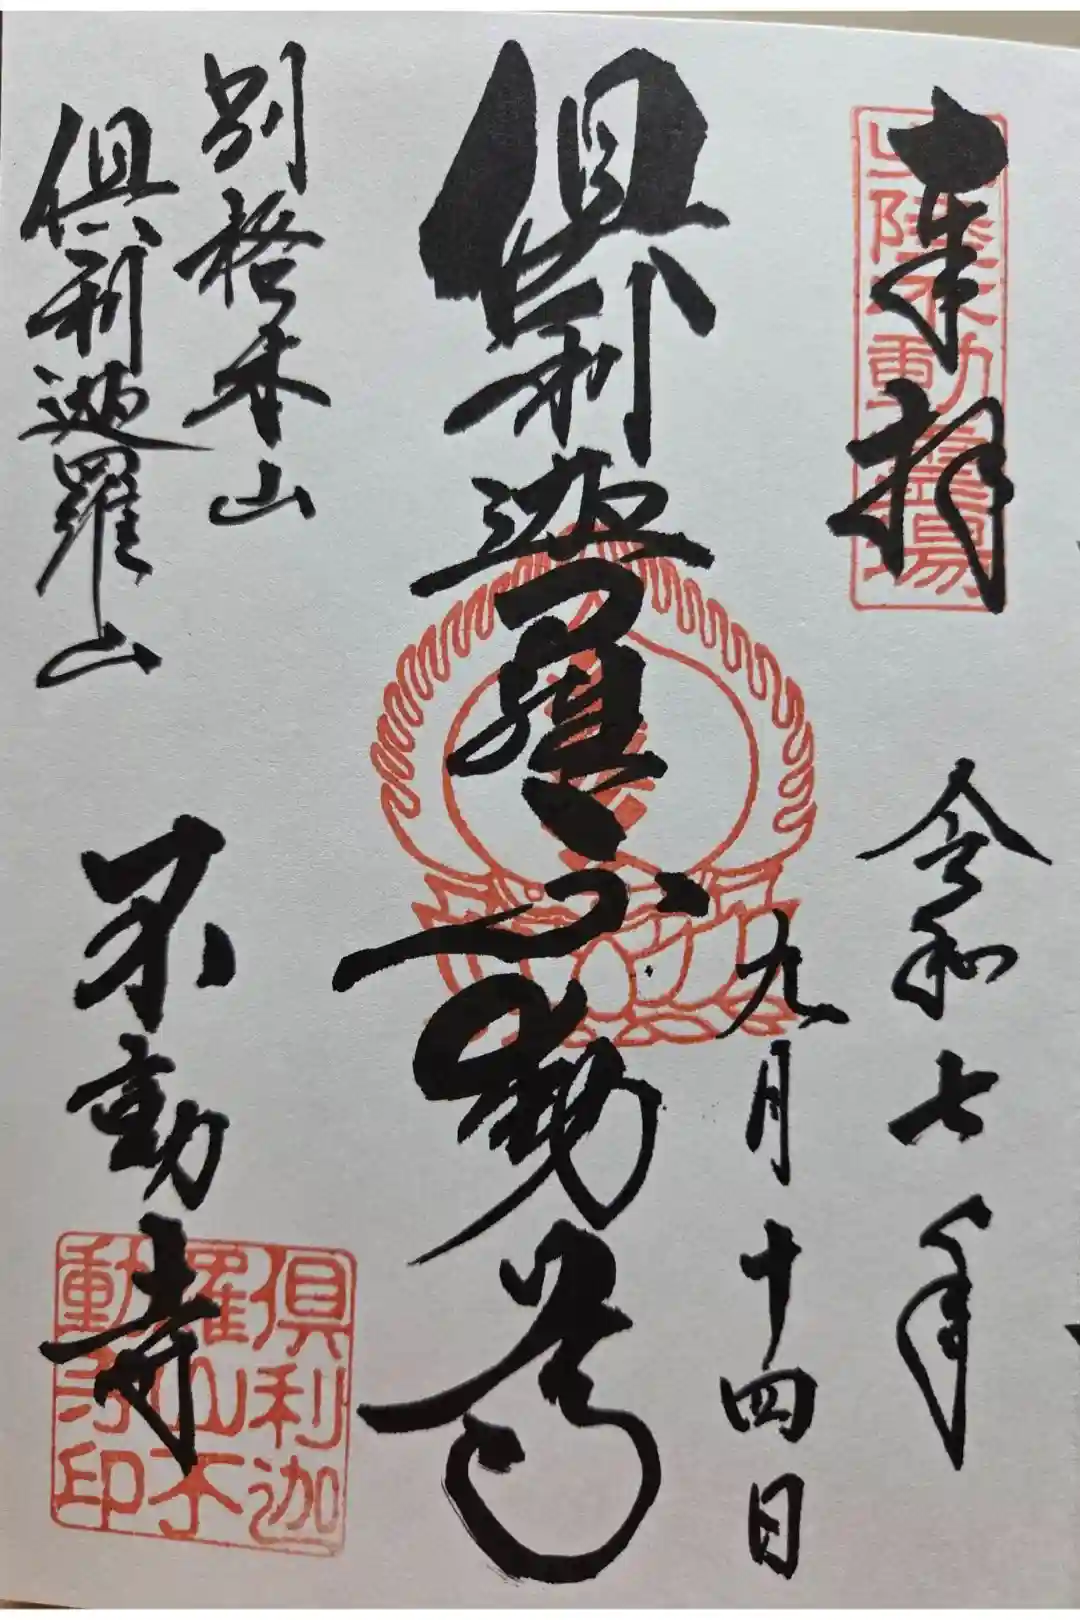 来拝
北陸不動霊場
令和七年
九月十四日
倶利迦羅不動尊
別格本山
倶利迦羅山
不動寺
倶利迦
羅山不
動寺印